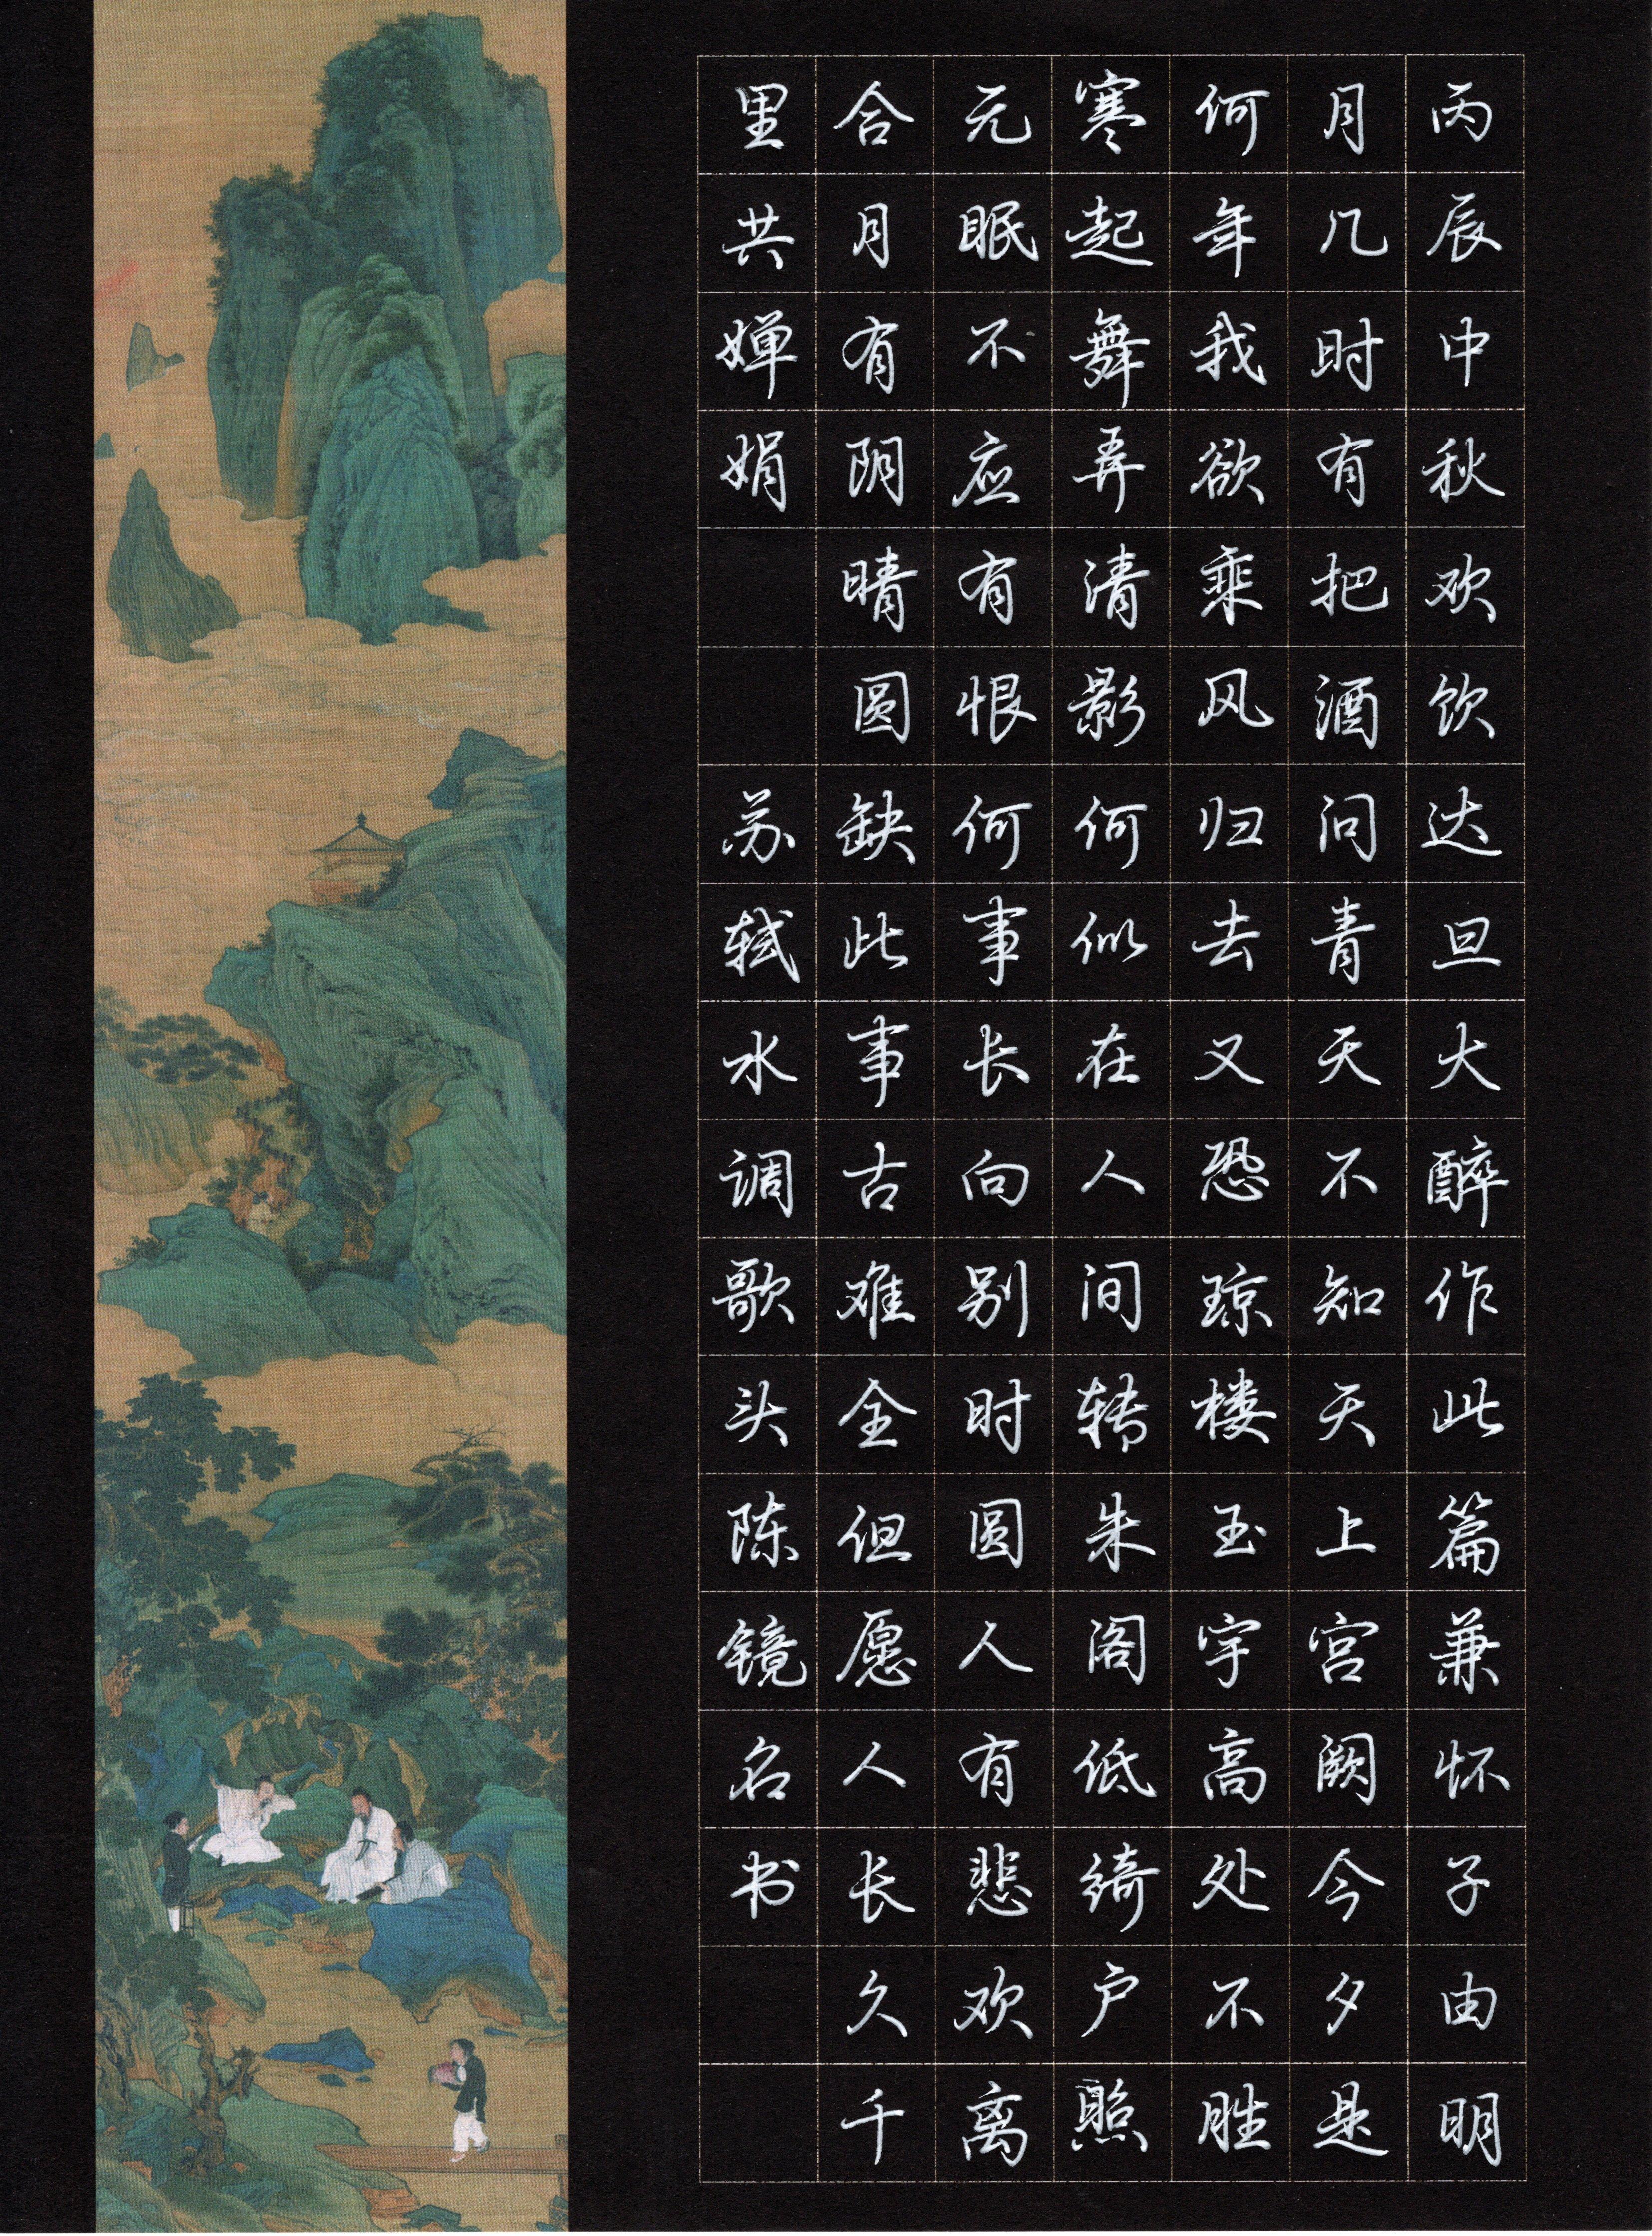 丙辰中秋欢饮达旦大醉作此篇兼怀子由明
月几时有把酒问青天不知天上宫阙今夕是
何年我欲乘风归去又恐琼楼玉宇高处不胜
寒起舞弄清影何似在人间转朱阁低绮户照
无眠不应有恨何事长向别时圆人有悲欢离
合月有阴晴圆缺此事古难全但愿人长久千
里共婵娟 苏轼水调歌头陈镜名书